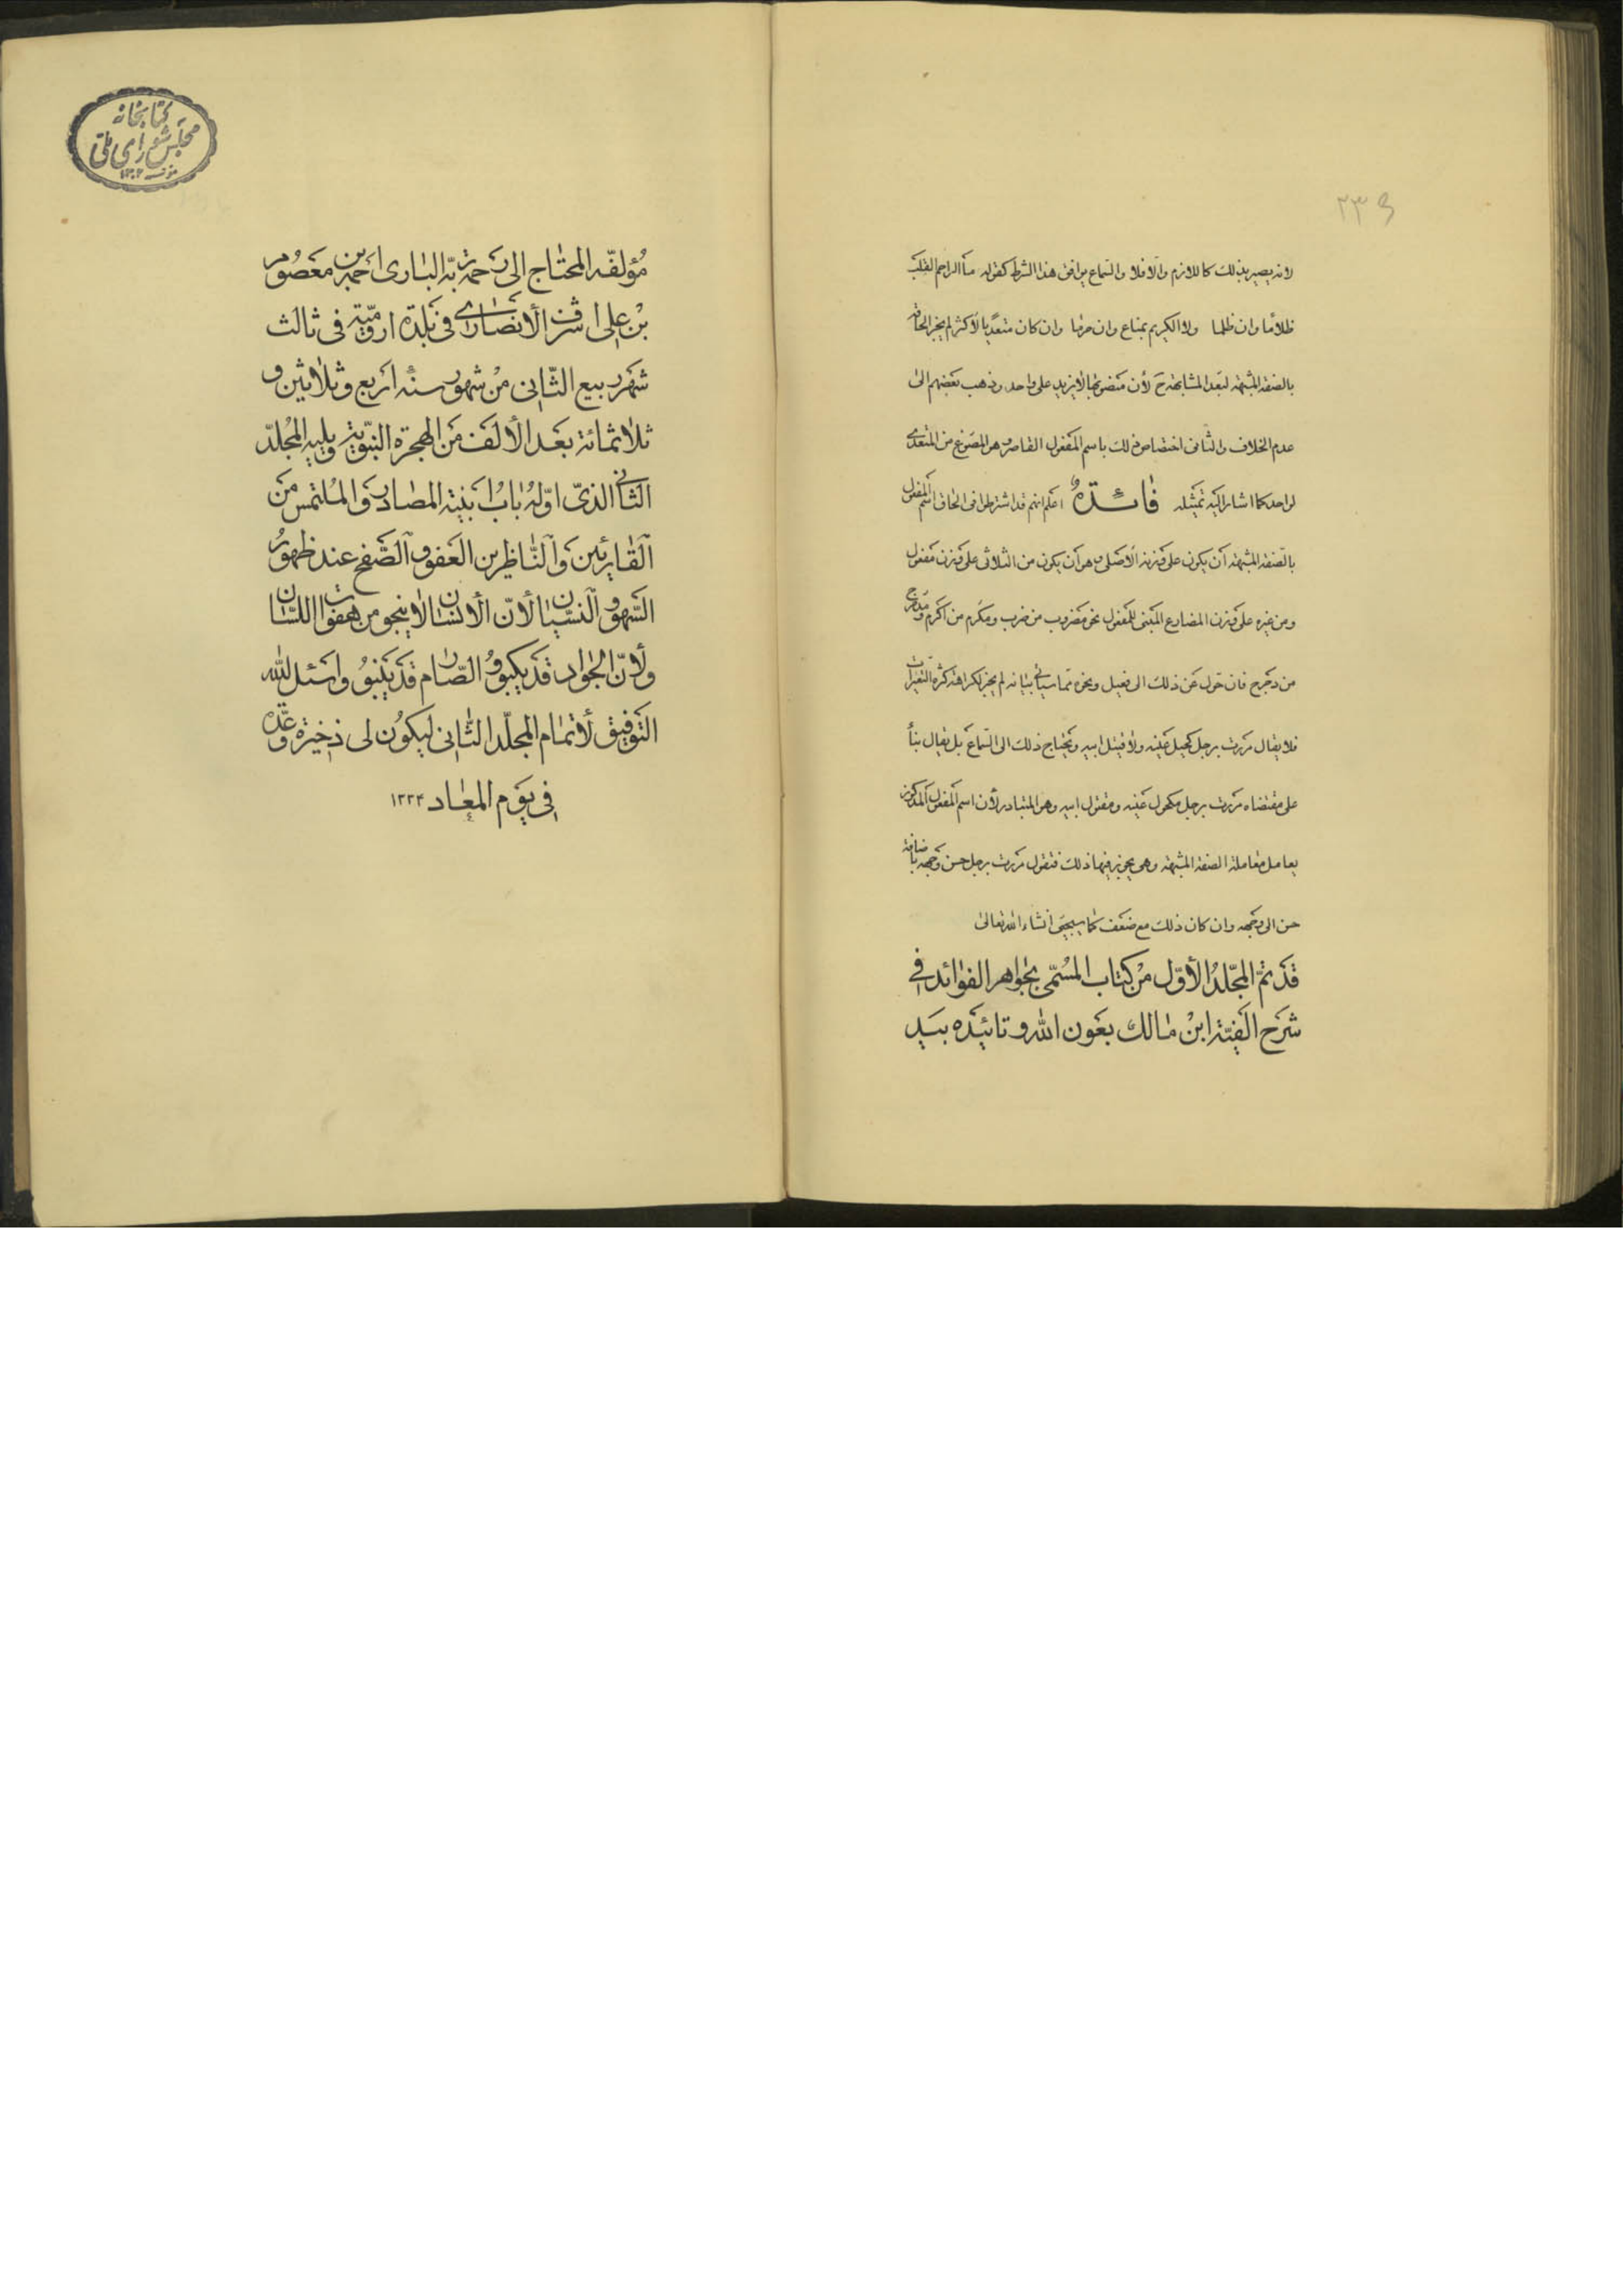 ٢٣٩
لانه يصير بذلك كاللازم والا فلا والسماع يوافق هذا الشرط كقوله ما الراحم القلب
ظلاما وان ظلما ولا الكريم بمناع وان حرما وان كان متعديا لأكثر لم يجز الحاقه
بالصفة المشبهة لبعد المشابهة ح لأن منصوبها لا يزيد على واحد وذهب بعضهم الى
عدم الخلاف والثانى اختصاص ذلك باسم المفعول القاصر وهو المصوغ من المتعدى
لواحد كما اشار اليه تمثيله فائدة اعلم انهم قد اشترطوا فى الحاق اسم المفعول
بالصفة المشبهة أن يكون على وزنه الأصلى وهو أن يكون من الثلاثى على وزن مفعول
ومن غيره على وزن المضارع المبنى للمفعول نحو مضروب من ضرب ومكرم من اكرم ومدحرج
من دحرج فان حول عن ذلك الى فعيل ونحوه مما سيأتى بيانه لم يجز لكراهة كثرة التغيرات
فلا يقال مررت برجل كحيل عينه ولا قتيل ابيه ويحتاج ذلك الى السماع بل يقال بناء
على مقتضاه مررت برجل مكحول عينه ومقتول ابيه وهو المتبادر لأن اسم المفعول المذكور
يعامل معاملة الصفة المشبهة وهى يجوز فيها ذلك فتقول مررت برجل حسن وجهه باضافة
حسن الى وجهه وان كان ذلك مع ضعف كما سيجئ انشاء الله تعالى
قد تمّ المجلّد الأوّل من كتاب المسمّى بجواهر الفوائد فى
شرح الفيّة ابن مالك بعون الله وتائيده بيد
كتابخانه
مجلس شورای ملّی
مؤلّفه المحتاج الى رحمة ربّه البارى احمد بن معصوم
بن على اشرف الأنصارى فى بلدة اروميّة فى ثالث
شهر ربيع الثّانى من شهور سنة اربع وثلاثين و
ثلاثمائة بعد الألف من الهجرة النبّويّة ويليه المجلّد
الثانى الذى اوّله باب ابنية المصادر والملتمس من
القارئين والنّاظرين العفو والصّفح عند ظهور
السّهو والنسيان لأنّ الأنسان لا ينجو من هفوات اللسّان
ولأنّ الجواد قد يكبو والصّارم قد ينبو واسئل الله
التوفيق لأتمام المجلّد الثّانى ليكون لى ذخيرة وعدّة
فى يوم المعاد ١٣٣٤